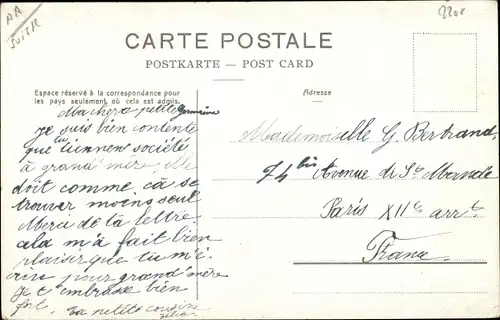 AA
Suisse
2208
CARTE POSTALE
POSTKARTE – POST CARD
Espace réservé à la correspondance pour
les pays seulement, où cela est admis.
Ma chère petite Germaine
je suis bien contente
que tu tiennent société
à grand mère, elle
doit comme, cà se
trouver moins seul
Merci de ta lettre
cela m'à fait bien
plaisir que tu m'é
crire pour grand mère
je t'embrasse bien
fort. ta petite cousine
Adresse
Mademoiselle G. Bertrand
74 bis Avenue de St Mandé
Paris XIIe arrt
France